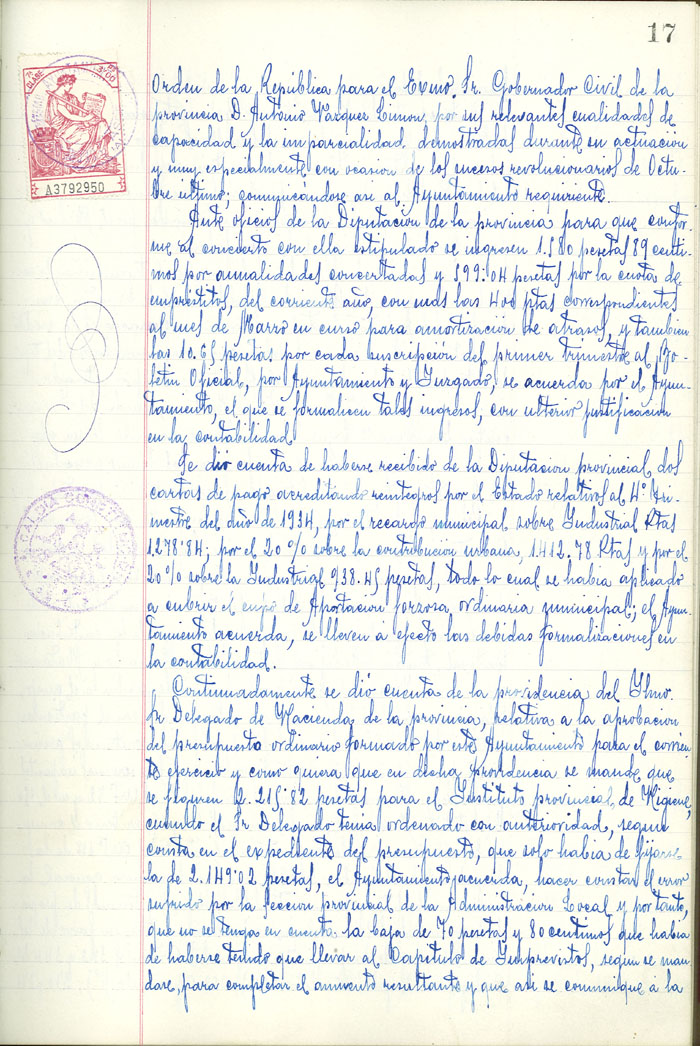 17
7ª CLASE
A3792950
Orden de la República para el Excmo. Sr. Gobernador Civil de la
provincia D. Antonio Vazquez Limon, por sus relevantes cualidades de
capacidad y la imparcialidad demostradas durante su actuacion
y muy especialmente con ocasion de los sucesos revolucionarios de Octu-
bre ultimo; comunicándose asi al Ayuntamiento requirente.
Ante oficios de la Diputacion de la provincia para que confor-
me al concierto con ella estipulado se ingresen 1.580 pesetas 89 centi-
mos por anualidades concertadas y 599'04 pesetas por la cuota de
empréstitos, del corriente año, con mas las 400 ptas correspondientes
al mes de Marzo en curso para amortizacion de atrasos, y tambien
las 10.65 pesetas por cada suscripción del primer trimestre al Bo-
letin Oficial, por Ayuntamiento y Juzgado, se acuerda por el Ayun-
tamiento, el que se formalicen tales ingresos, con ulterior justificacion
en la contabilidad
Se dió cuenta de haberse recibido de la Diputacion provincial dos
cartas de pago acreditando reintegros por el Estado relativos al 4º tri-
mestre del año de 1934, por el recargo municipal sobre Industrial Ptas
1278'84; por el 20 % sobre la contribucion urbana, 1412.78 Ptas y por el
20 % sobre la Industrial 938.45 pesetas, todo lo cual se habia aplicado
a cubrir el cupo de Aportacion forzosa ordinaria municipal; el Ayun-
tamiento acuerda, se lleven á efecto las debidas formalizaciones en
la contabilidad.
Continuadamente se dió cuenta de la providencia del Ilmo.
Sr Delegado de Hacienda de la provincia, relativa a la aprobacion
del presupuesto ordinario formado por este Ayuntamiento para el corrien-
te ejercicio y como quiera que en dicha providencia se mande que
se figuren 2.215'82 pesetas para el Instituto provincial de Higiene,
cuando el Sr Delegado tenia ordenado con anterioridad, segun
consta en el expediente del presupuesto, que solo habia de fijarse
la de 2.149'02 pesetas, el Ayuntamiento acuerda, hacer constar el error
sufrido por la Seccion provincial de la Administracion Local y por tanto,
que no se tenga en cuenta la baja de 70 pesetas y 80 centimos que habia
de haberse tenido que llevar al Capitulo de Imprevistos, segun se man-
dase, para completar el aumento resultante y que asi se comunique á la